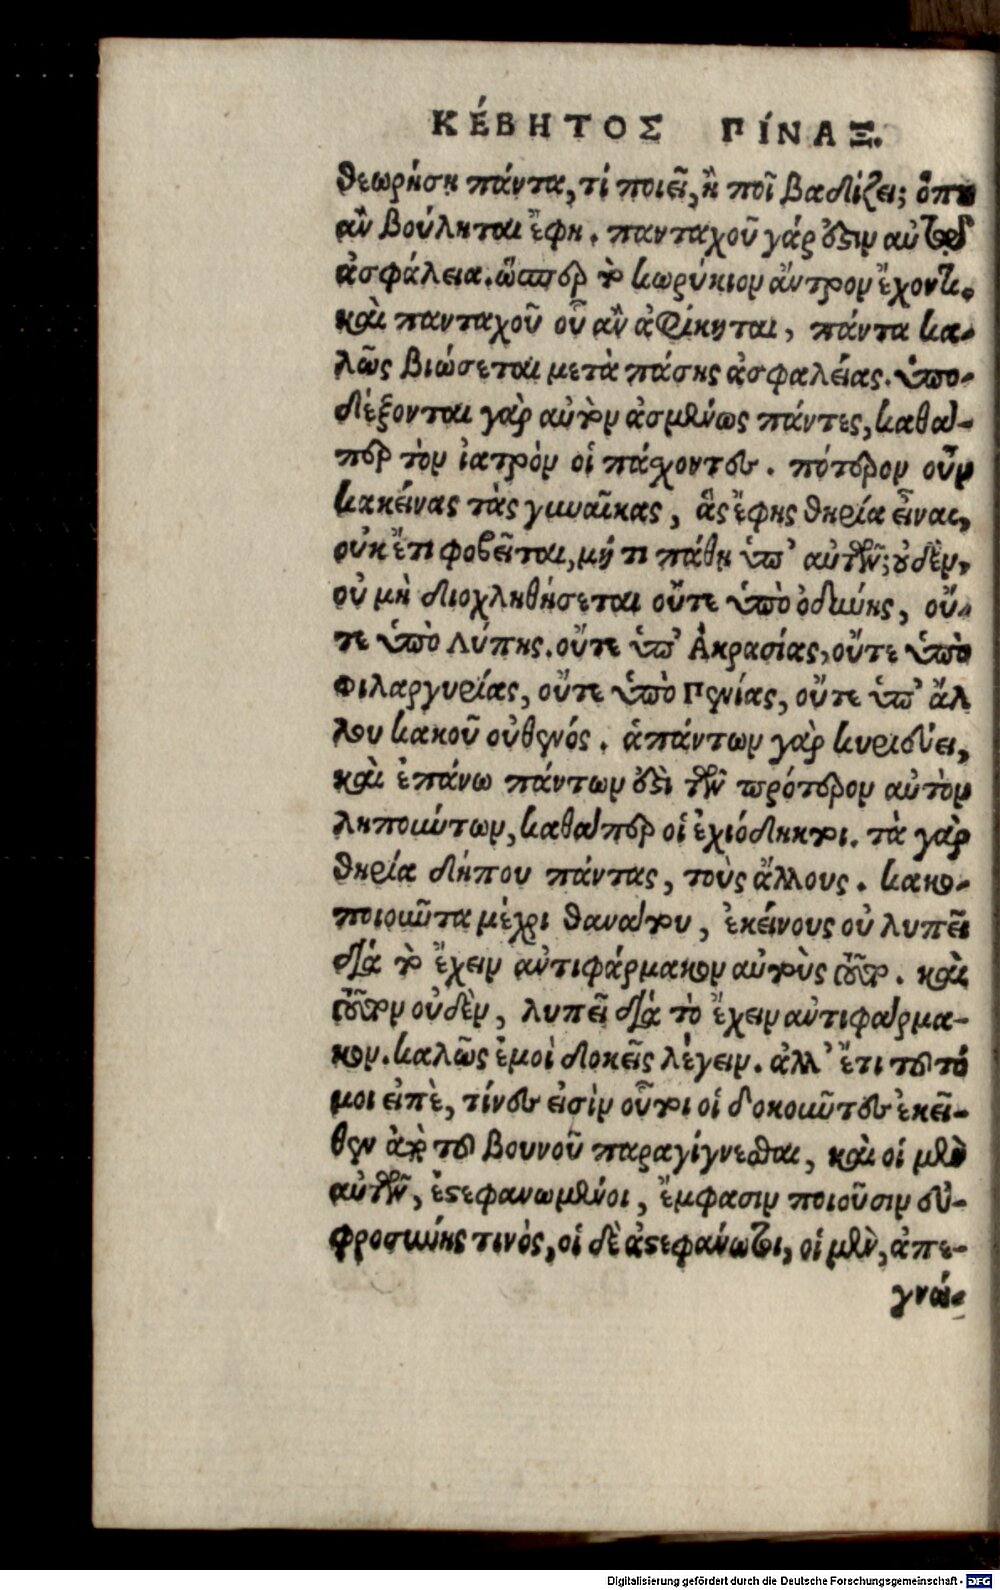 ΚΈΒΗΤΟΣ ΠΊΝΑΞ.
θεωρήσῃ πάντα, τί ποιεῖ, ἢ ποῖ βαδίζει; ὅπου
ἂν βούληται ἔφη. πανταχοῦ γάρ ἐστιν αὐτῷ
ἀσφάλεια. ὥσπερ τὸ κωρύκιον ἄντρον ἔχοντι.
καὶ πανταχοῦ οὗ ἂν ἀφίκηται, πάντα κα-
λῶς βιώσεται μετὰ πάσης ἀσφαλείας. ὑπο-
δέξονται γὰρ αὐτὸν ἀσμένως πάντες, καθά-
περ τὸν ἰατρὸν οἱ πάσχοντες. πότερον οὖν
κακείνας τὰς γυναῖκας, ἃς ἔφης θηρία εἶναι,
οὐκ ἔτι φοβεῖται, μή τι πάθῃ ὑπ' αὐτῶν; οὐδὲν,
οὐ μὴ διοχληθήσεται οὔτε ὑπὸ ὀδύνης, οὔ-
τε ὑπὸ Λύπης. οὔτε ὑπ' Ἀκρασίας, οὔτε ὑπὸ
Φιλαργυρίας, οὔτε ὑπὸ Πενίας, οὔτε ὑπ' ἄλ
λου κακοῦ οὐθενός. ἁπάντων γὰρ κυριεύει,
καὶ ἐπάνω πάντων ἐστὶ τῶν πρότερον αὐτὸν
λυπούντων, καθάπερ οἱ ἐχιόδηκτοι. τὰ γὰρ
θηρία δήπου πάντας, τοὺς ἄλλους. κακο-
ποιοῦντα μέχρι θανάτου, ἐκείνους οὐ λυπεῖ
διὰ τὸ ἔχειν ἀντιφάρμακον αὐτοὺς οὕτω. καὶ
τοῦτον οὐδὲν, λυπεῖ διὰ τὸ ἔχειν ἀντιφάρμα-
κον. καλῶς ἐμοὶ δοκεῖς λέγειν. ἀλλ' ἔτι τοῦτό
μοι εἰπὲ, τίνες εἰσὶν οὗτοι οἱ δοκοῦντες ἐκεῖ-
θεν ἀπὸ τοῦ βουνοῦ παραγίγνεσθαι, καὶ οἱ μὲν
αὐτῶν, ἐστεφανωμένοι, ἔμφασιν ποιοῦσιν εὐ-
φροσύνης τινὸς, οἱ δὲ ἀστεφάνωτοι, οἱ μὲν, ἀπε-
γνώ-
Digitalisierung gefördert durch die Deutsche Forschungsgemeinschaft - DFG